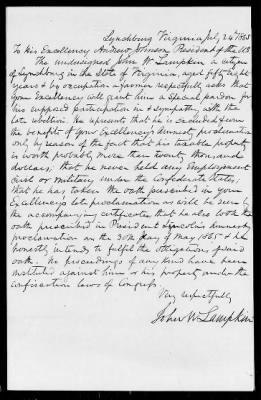 Lynchburg Virginia July 24th 1865
To His Excellency Andrew Johnson President of the US
The undersigned John W Lampkin a citizen
of Lynchburg in the State of Virginia, aged fifty eight
years & by occupation a farmer respectfully asks that
your Excellency will grant him a special pardon for
his supposed participation in & sympathy with the
late rebellion. He represents that he is excluded from
the benefit of your Excellency's Amnesty proclamation
only by reason of the fact that his taxable property
is worth probably more than twenty thousand
dollars; that he never held any Employment
civil or military under the Confederate States,
that he has taken the oath prescribed in your
Excellency's late proclamation as will be seen by
the accompanying certificate, that he also took the
oath prescribed in President Lincoln's Amnesty
proclamation on the 30th day of May 1865 & he
honestly intends to fulfil the obligations of said
oath. No proceedings of any kind have been
instituted against him or his property under the
confiscation laws of Congress.
Very respectfully
John W Lampkin